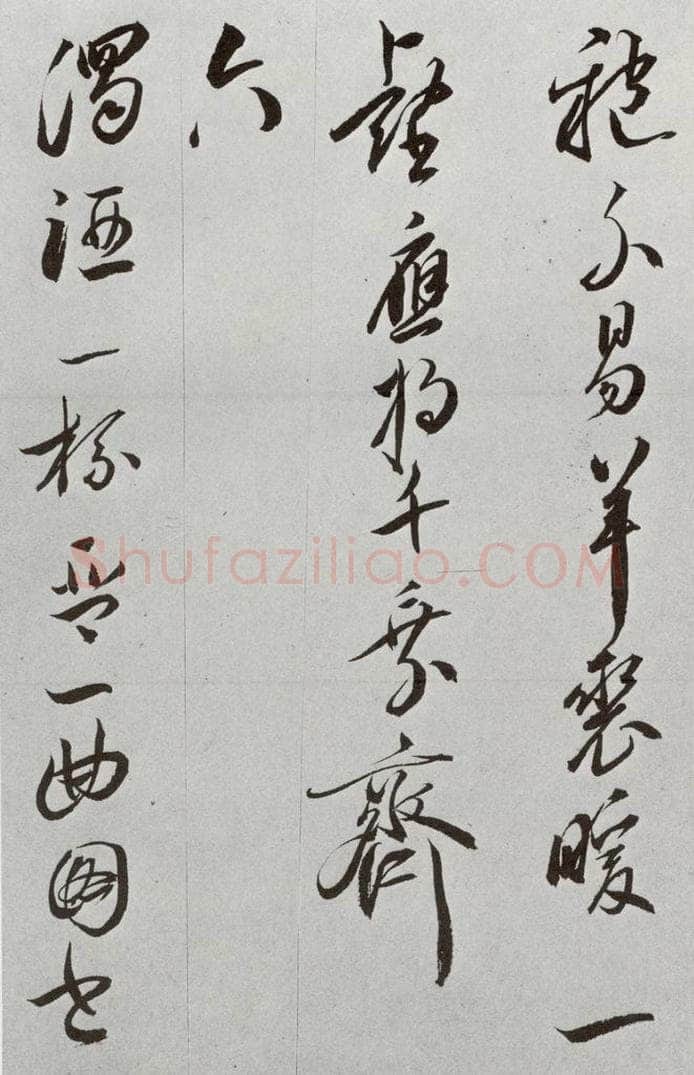 袍不易羊裘暖一
壑應將千乘齊
六
濁酒一杯琴一曲圖書
Shufaziliao.COM